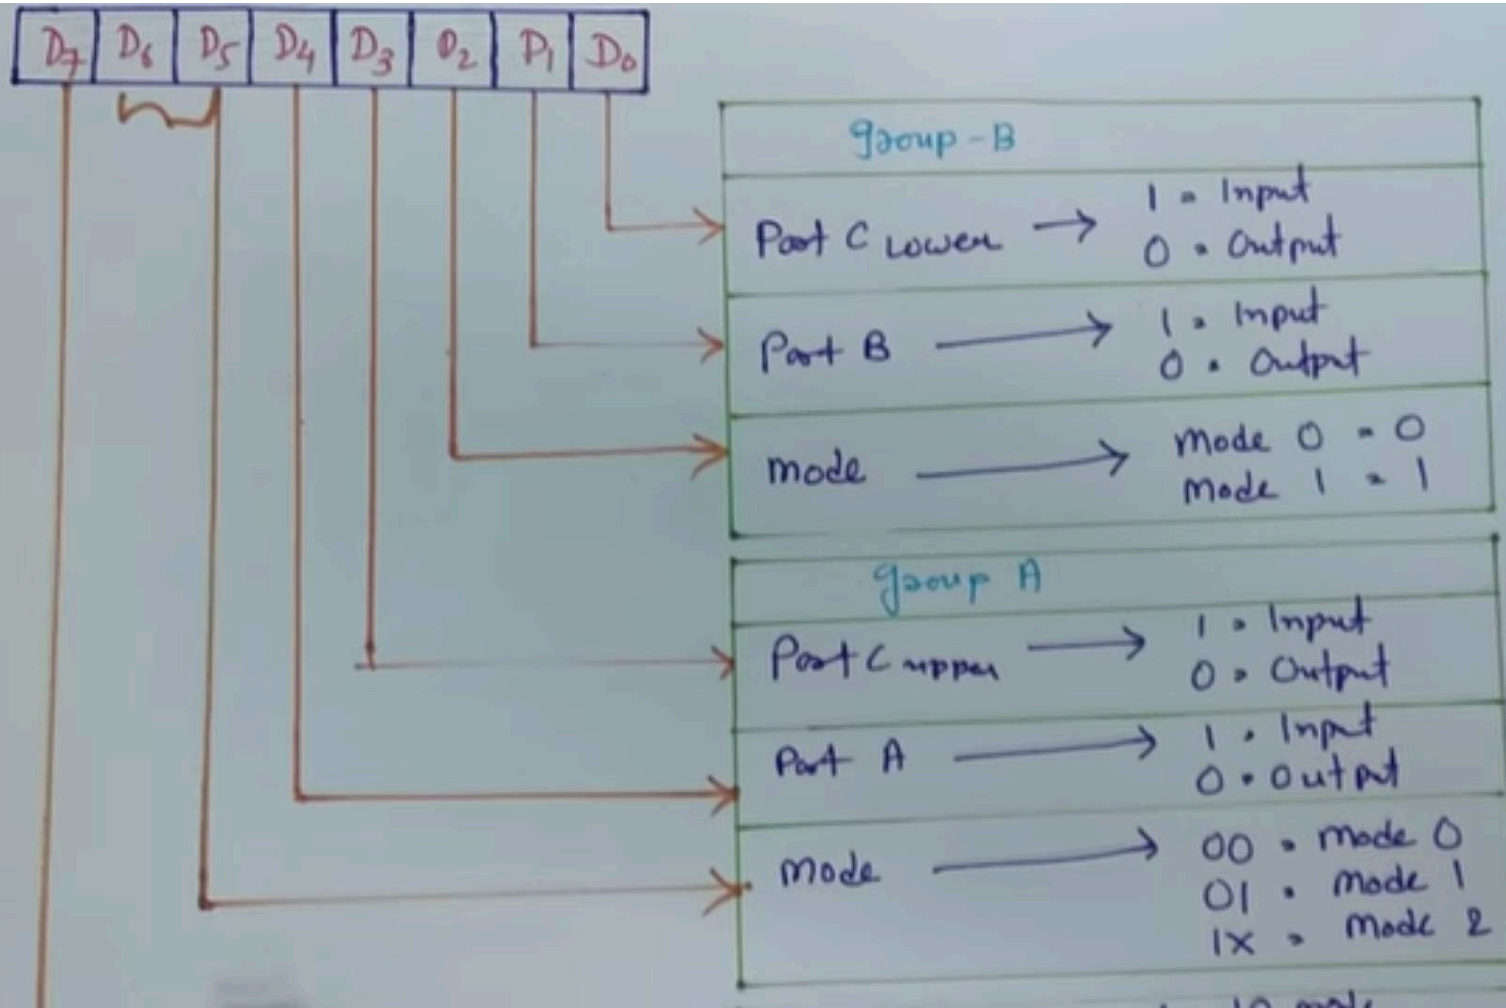 D7 D6 D5 D4 D3 D2 D1 D0
group-B
Port C Lower → 1 = Input
0 = Output
Port B → 1 = Input
0 = Output
mode → Mode 0 = 0
Mode 1 = 1
group A
Port C upper → 1 = Input
0 = Output
Port A → 1 = Input
0 = Output
mode → 00 = Mode 0
01 = Mode 1
1X = Mode 2